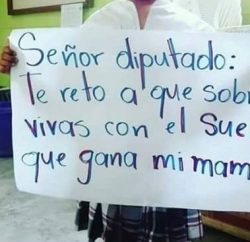 Señor diputado:
Te reto a que sobr
vivas con el Sue
que gana mi mam